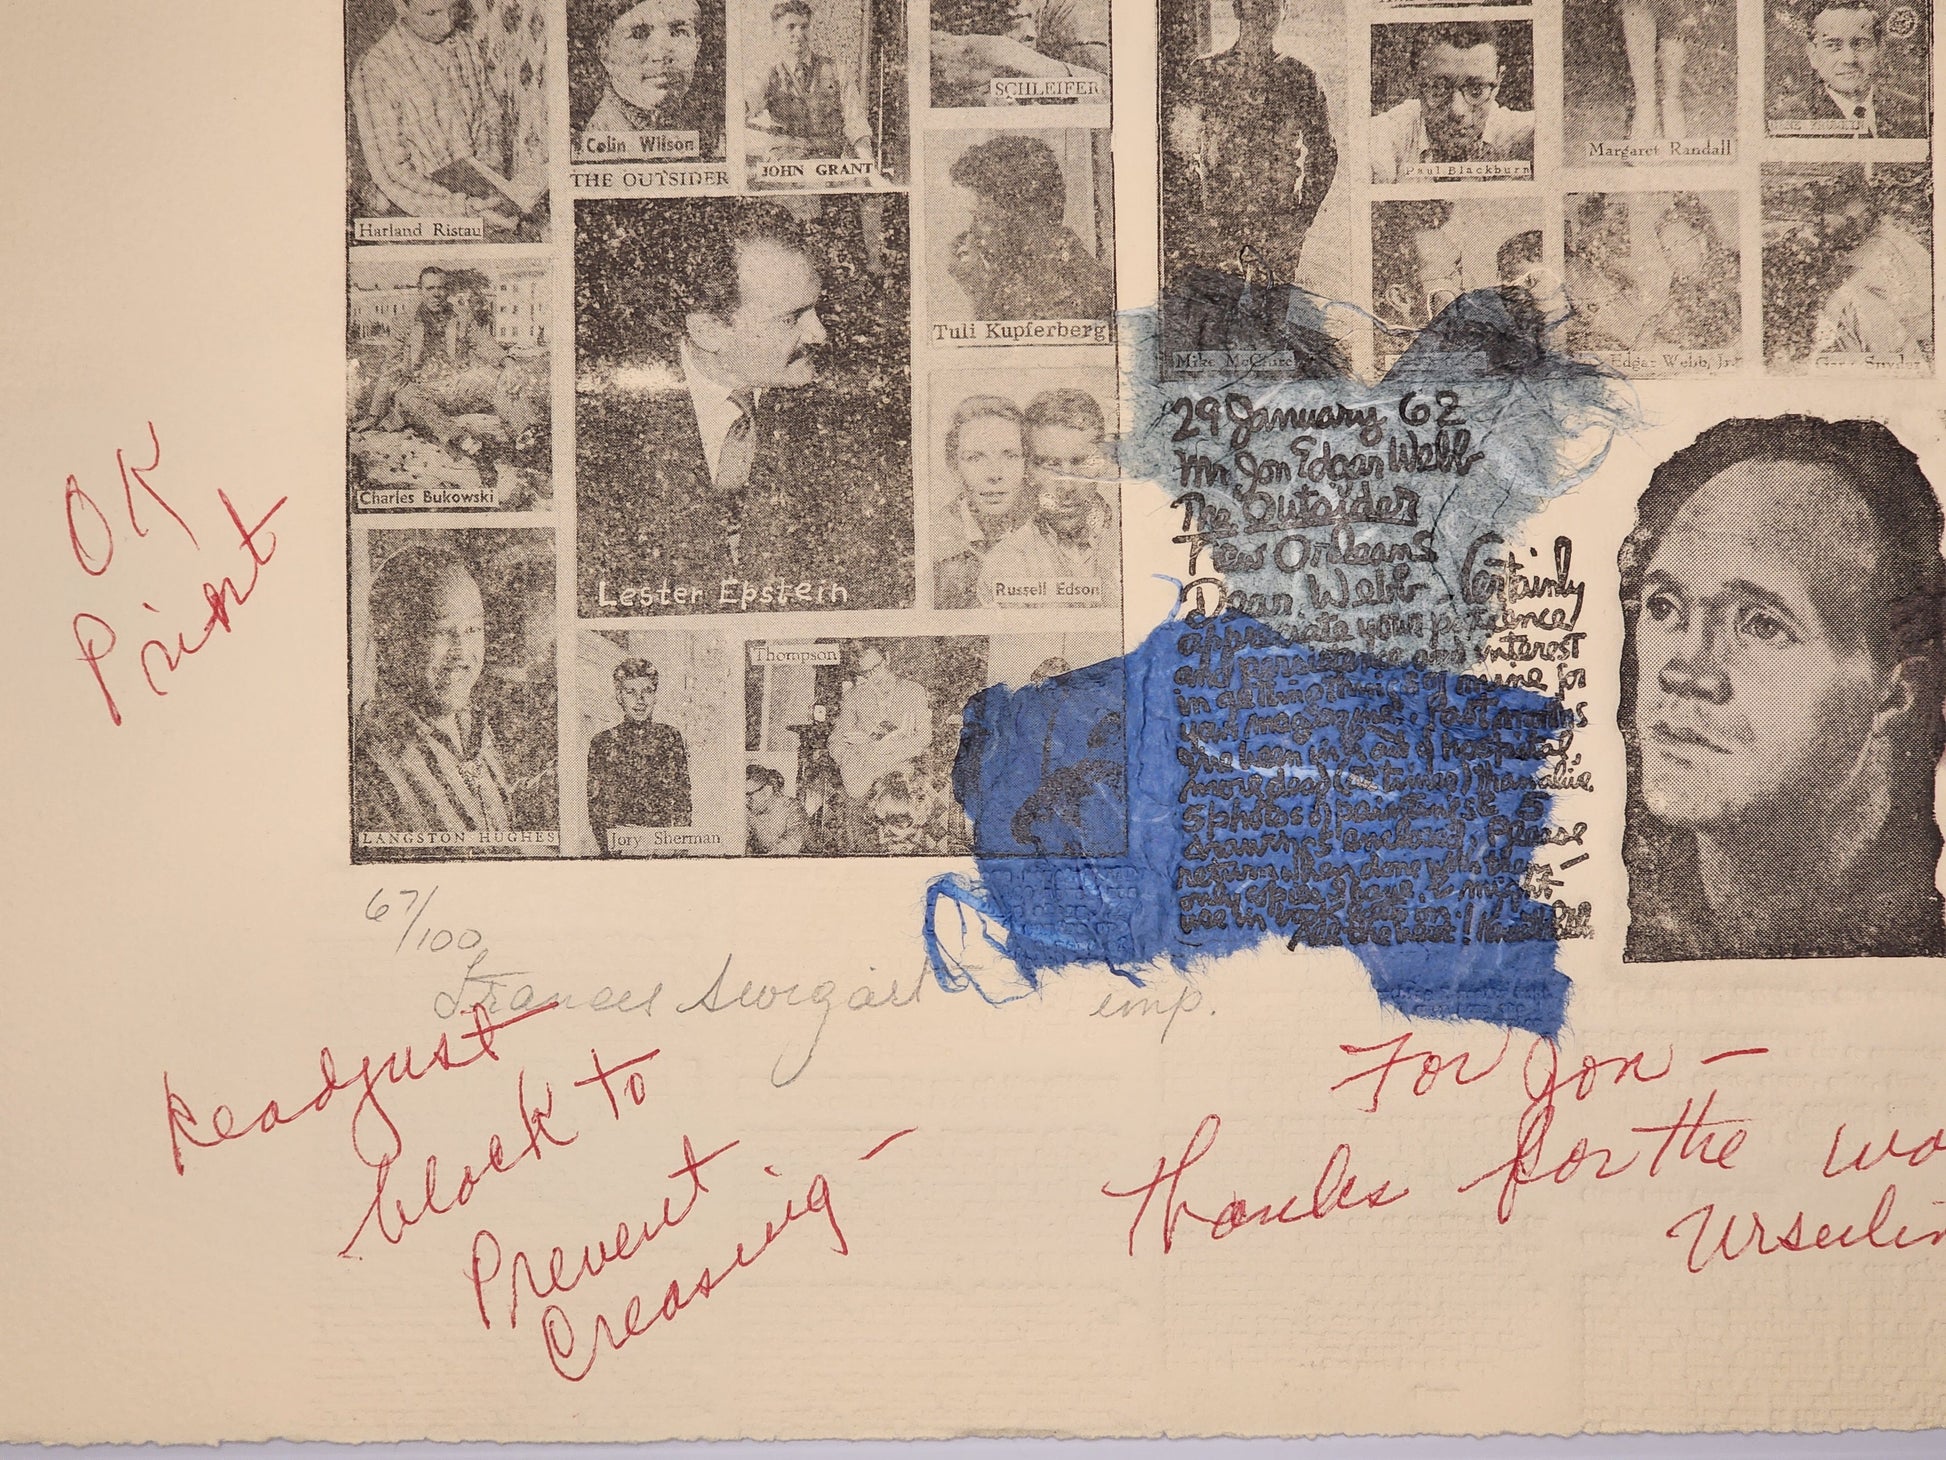 SCHLEIFER
Colin Wilson
THE OUTSIDER
JOHN GRANT
Harland Ristau
Tuli Kupferberg
Charles Bukowski
Lester Epstein
Russell Edson
LANGSTON HUGHES
Jory Sherman
Thompson
Paul Blackburn
Margaret Randall
Mike McClure
Edgar Webb, Jr.
Gary Snyder
29 January 62
Mr. Jon Edgar Webb
The Outsider
New Orleans
Dear Webb - Certainly
appreciate your patience
and persistence and interest
in getting things of mine for
your magazine. Past months
have been in & out of hospital,
more dead (at times) than alive.
5 photos of paintings & 5
drawings enclosed, Please
return when done with them —
only copies I have, & might
use in book later on!
All the best!
OK
Print
67/100
Frances Swigart imp.
Readjust
block to
Prevent
Creasing -
For Jon -
Thanks for the